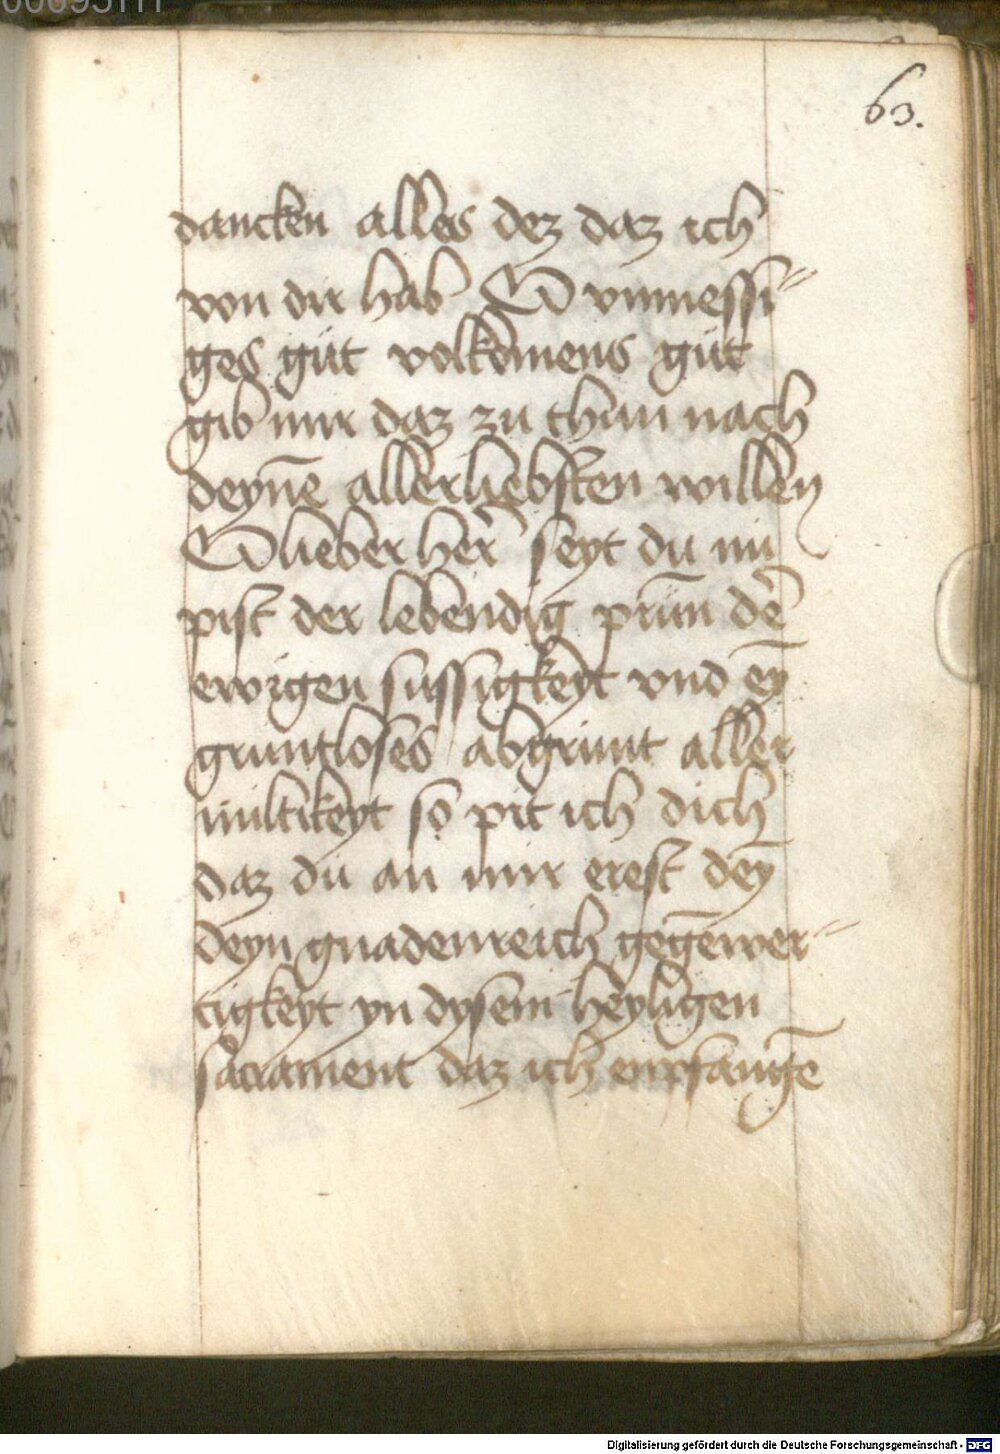 63.
dancken alles dez daz ich
von dir hab O vnmessi⸗
ges güt volkōmens güt
gib mir daz zu thun nach
deyne̅ allerliebsten willen
O lieber her̅ seyt du nu
pist der lebendig prūn de̅
ewigen sussigkeyt vnd ey̅
gruntloses abgrunt aller
miltikeyt so pit ich dich
daz du an mir erest dey̅
deyn gnadenreich gege̅wer⸗
tigkeyt yn dysem heyligen
sacrament daz ich enpfange̅
Digitalisierung gefördert durch die Deutsche Forschungsgemeinschaft - DFG